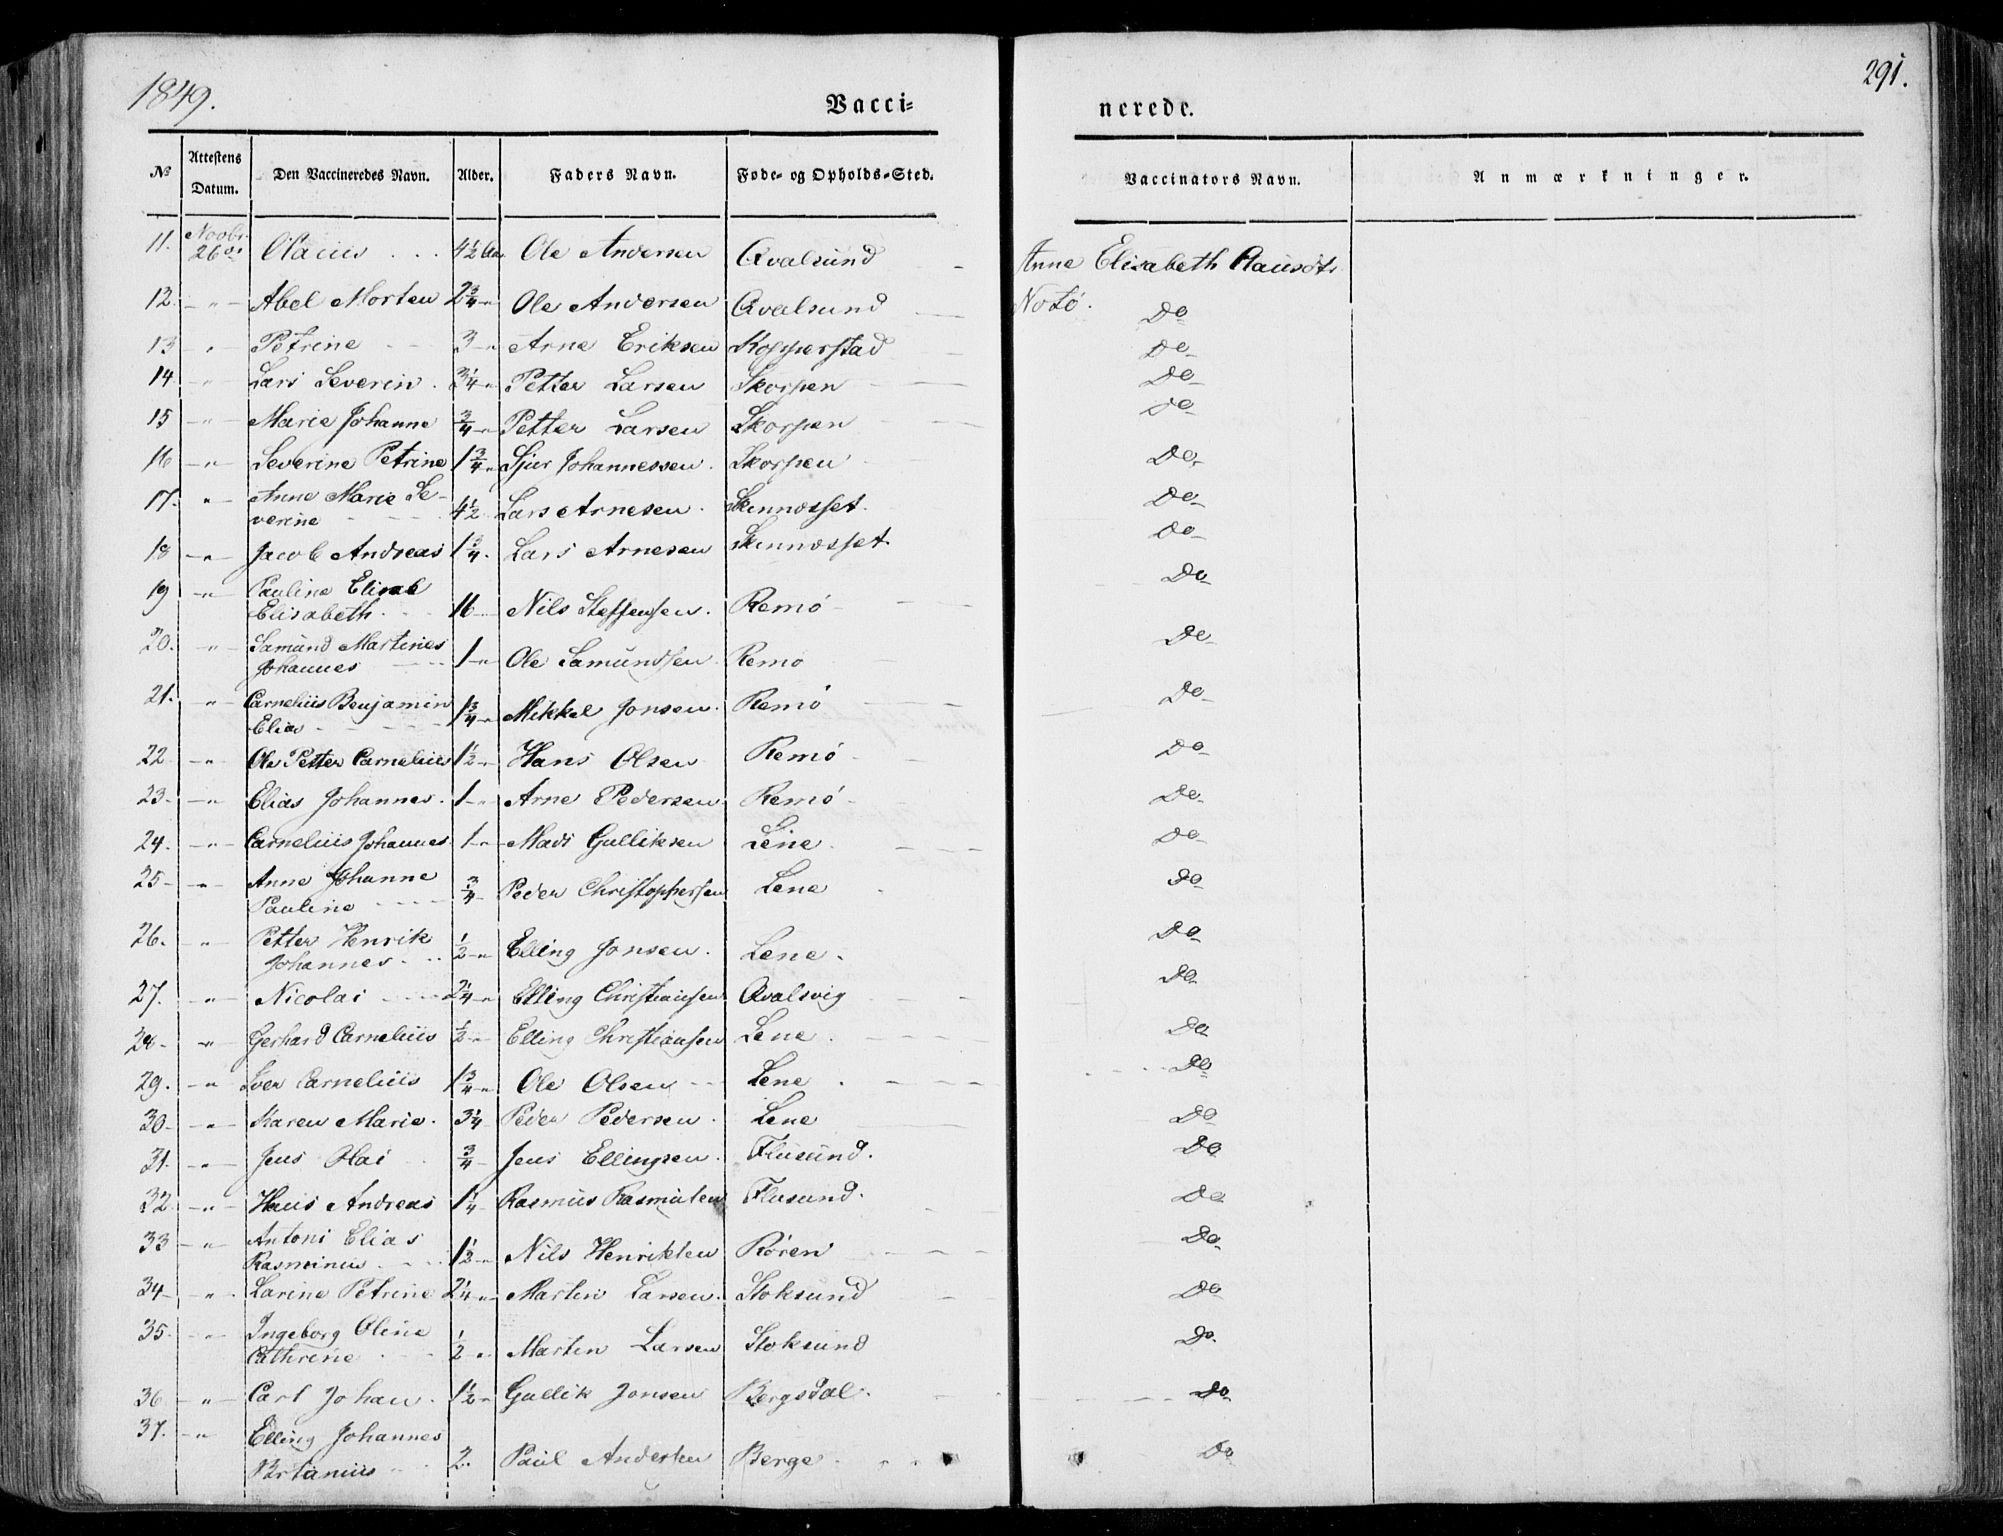 1849.
291.
Vacci-
nerede.
No
Attestens Datum.
Den Vaccineredes Navn.
Alder.
Faders Navn.
Føde- og Opholds-Sted.
Vaccinators Navn.
Anmærkninger.
11. Novbr. 26de Olaius 4½ Aar Ole Andersen Qvalsund Anne Elisabeth Clausdtr
12. -"- Abel Morten 2¾ -"- Ole Andersen Qvalsund Notø. Do
13 " Petrine 3 -"- Arne Eriksen Kopperstad Do
14 " Lars Severin 3¼ " Petter Larsen Skorpen Do
15 " Marie Johanne ¾ -"- Petter Larsen Skorpen Do
16 -"- Severine Petrine 1¾ " Sjur Johannessen. Skorpen Do
17. " Anne Marie Se-
verine 4½ Lars Arnesen. Do
18 -"- Jacob Andreas 1¾. Lars Arnesen Do
19 -"- Pauline Elisab
Elisabeth. 16 Nils Steffensen. Remø Do
20. -"- Samund Martines
Johannes 1 -"- Ole Samundsen Remø Do
21. -"- Carnelius Benjamin
Elias 1¾ -"- Mikkel Jonsen. Remø Do
22 -"- Ole Petter Carnelius 1½ -"- Hans Olsen Remø Do
23. -"- Elias Johannes. 1 -"- Arne Pedersen Remø Do
24. -"- Carnelius Johannes 1 -"- Mads Gulliksen Leine. Do
25 -"- Anne Johanne
Pauline ¾ Peder Christophersen Lene Do
26. -"- Petter Henrik
Johannes. ½ -"- Elling Jonsen. Lene. Do
27. -"- Nicolai 2¼ -"- Elling Christiansen Qvalsvig Do
28. -"- Gerhard Carnelius ½ -"- Elling Christiansen Lene. Do
29. -"- Iver Carnelius 1¾ -"- Ole Olsen Lene. Do
30. -"- Karen Marie. 3¼ Peder Pedersen. Lene Do
31. -"- Jens Olai ¾ Jens Ellingsen. Flusund. Do
32 -"- Hans Andreas 1¼ Rasmus Rasmusen Flusund. Do
33 -"- Antoni Elias
Rasminus 1½ -"- Nils Henriksen Røren Do
34 -"- Larine Petrine 2¼ -"- Martin Larsen. Stoksund Do
35. -"- Ingeborg Oline
Cathrine ½ -"- Martin Larsen Stoksund Do.
36 -"- Carl Johan. 1½ -"- Gullik Jonsen Bergsdal. Do
37. -"- Elling Johannes
2. Paul Andersen Berge Do